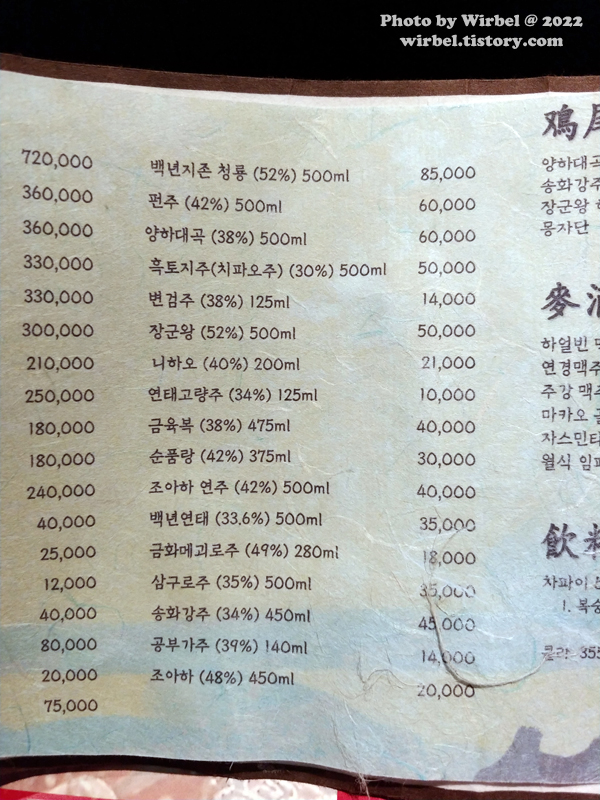 Photo by Wirbel @ 2022
wirbel.tistory.com
720,000
360,000
360,000
330,000
330,000
300,000
210,000
250,000
180,000
180,000
240,000
40,000
25,000
12,000
40,000
80,000
20,000
75,000
백년지존 청룡 (52%) 500ml 85,000
펀주 (42%) 500ml 60,000
양하대곡 (38%) 500ml 60,000
흑토지주(치파오주) (30%) 500ml 50,000
변검주 (38%) 125ml 14,000
장군왕 (52%) 500ml 50,000
니하오 (40%) 200ml 21,000
연태고량주 (34%) 125ml 10,000
금육복 (38%) 475ml 40,000
순품랑 (42%) 375ml 30,000
조아하 연주 (42%) 500ml 40,000
백년연태 (33.6%) 500ml 35,000
금화메괴로주 (49%) 280ml 18,000
삼구로주 (35%) 500ml 35,000
송화강주 (34%) 450ml 45,000
공부가주 (39%) 140ml 14,000
조아하 (48%) 450ml 20,000
鴆尾
양하대곡
송화강주
장군왕
몽자단
麥酒
하얼빈
연경맥주
주강 맥주
마카오
자스민
월식
飲料
차파이
1. 복숭
콜라 355